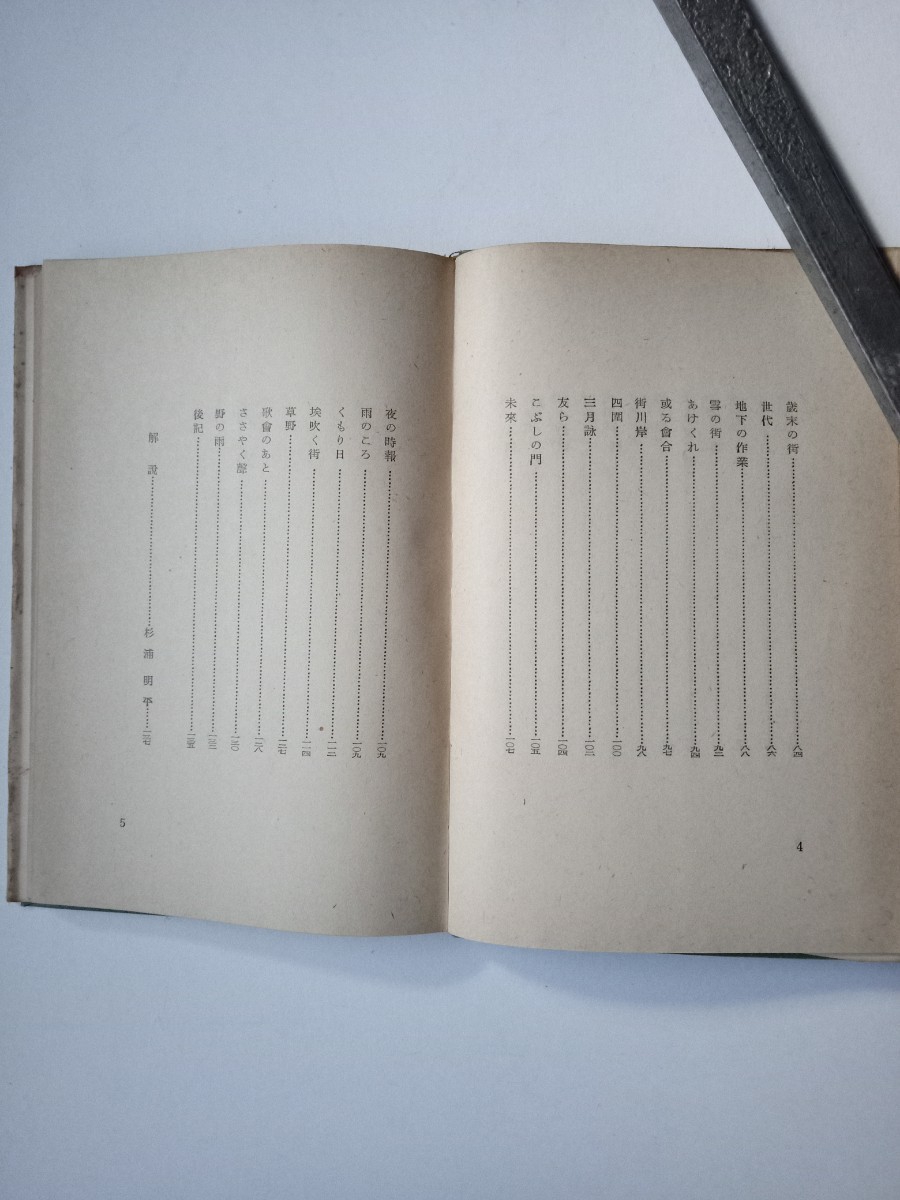 歳末の街……八四
世代……八六
地下の作業……八八
雪の街……九二
あけくれ……九四
或る會合……九七
街川岸……九八
四圍……一〇〇
三月詠……一〇二
友ら……一〇四
こぶしの門……一〇五
未來……一〇七
4
夜の時報……一〇九
雨のころ……一〇九
くもり日……一一二
埃吹く街……一一四
草野……一一七
歌會のあと……一一八
ささやく
野の雨
後記
解說……杉浦明平
5